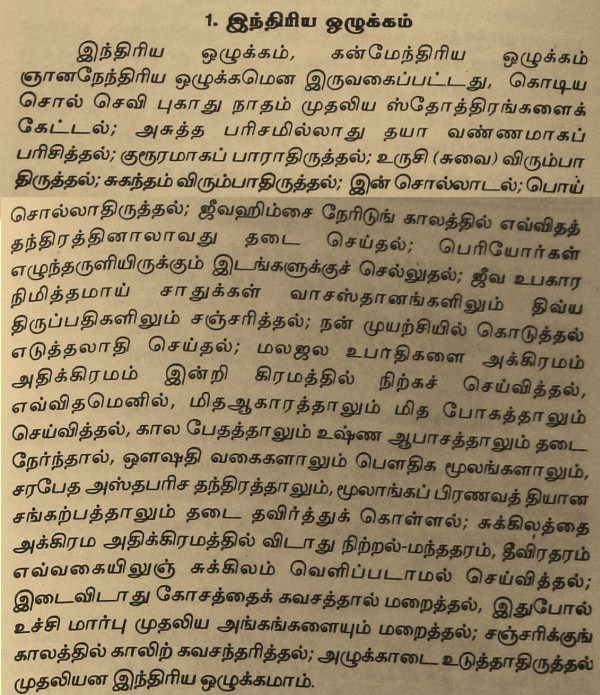 1. இந்திரிய ஒழுக்கம்
இந்திரிய ஒழுக்கம், கன்மேந்திரிய ஒழுக்கம்
ஞானநேந்திரிய ஒழுக்கமென இருவகைப்பட்டது, கொடிய
சொல் செவி புகாது நாதம் முதலிய ஸ்தோத்திரங்களைக்
கேட்டல்; அசுத்த பரிசமில்லாது தயா வண்ணமாகப்
பரிசித்தல்; குரூரமாகப் பாராதிருத்தல்; உருசி (சுவை) விரும்பா
திருத்தல்; சுகந்தம் விரும்பாதிருத்தல்; இன் சொல்லாடல்; பொய்
சொல்லாதிருத்தல்; ஜீவஹிம்சை நேரிடுங் காலத்தில் எவ்விதத்
தந்திரத்தினாலாவது தடை செய்தல்; பெரியோர்கள்
எழுந்தருளியிருக்கும் இடங்களுக்குச் செல்லுதல்; ஜீவ உபகார
நிமித்தமாய் சாதுக்கள் வாசஸ்தானங்களிலும் திவ்ய
திருப்பதிகளிலும் சஞ்சரித்தல்; நன் முயற்சியில் கொடுத்தல்
எடுத்தலாதி செய்தல்; மலஜல உபாதிகளை அக்கிரமம்
அதிக்கிரமம் இன்றி கிரமத்தில் நிற்கச் செய்வித்தல்,
எவ்விதமெனில், மிதஆகாரத்தாலும் மித போகத்தாலும்
செய்வித்தல், கால பேதத்தாலும் உஷ்ண ஆபாசத்தாலும் தடை
நேர்ந்தால், ஔஷதி வகைகளாலும் பௌதிக மூலங்களாலும்,
சரபேத அஸ்தபரிச தந்திரத்தாலும், மூலாங்கப் பிரணவத் தியான
சங்கற்பத்தாலும் தடை தவிர்த்துக் கொள்ளல்; சுக்கிலத்தை
அக்கிரம அதிக்கிரமத்தில் விடாது நிற்றல்-மந்ததரம், தீவிரதரம்
எவ்வகையிலுஞ் சுக்கிலம் வெளிப்படாமல் செய்வித்தல்;
இடைவிடாது கோசத்தைக் கவசத்தால் மறைத்தல், இதுபோல்
உச்சி மார்பு முதலிய அங்கங்களையும் மறைத்தல்; சஞ்சரிக்குங்
காலத்தில் காலிற் கவசந்தரித்தல்; அழுக்காடை உடுத்தாதிருத்தல்
முதலியன இந்திரிய ஒழுக்கமாம்.